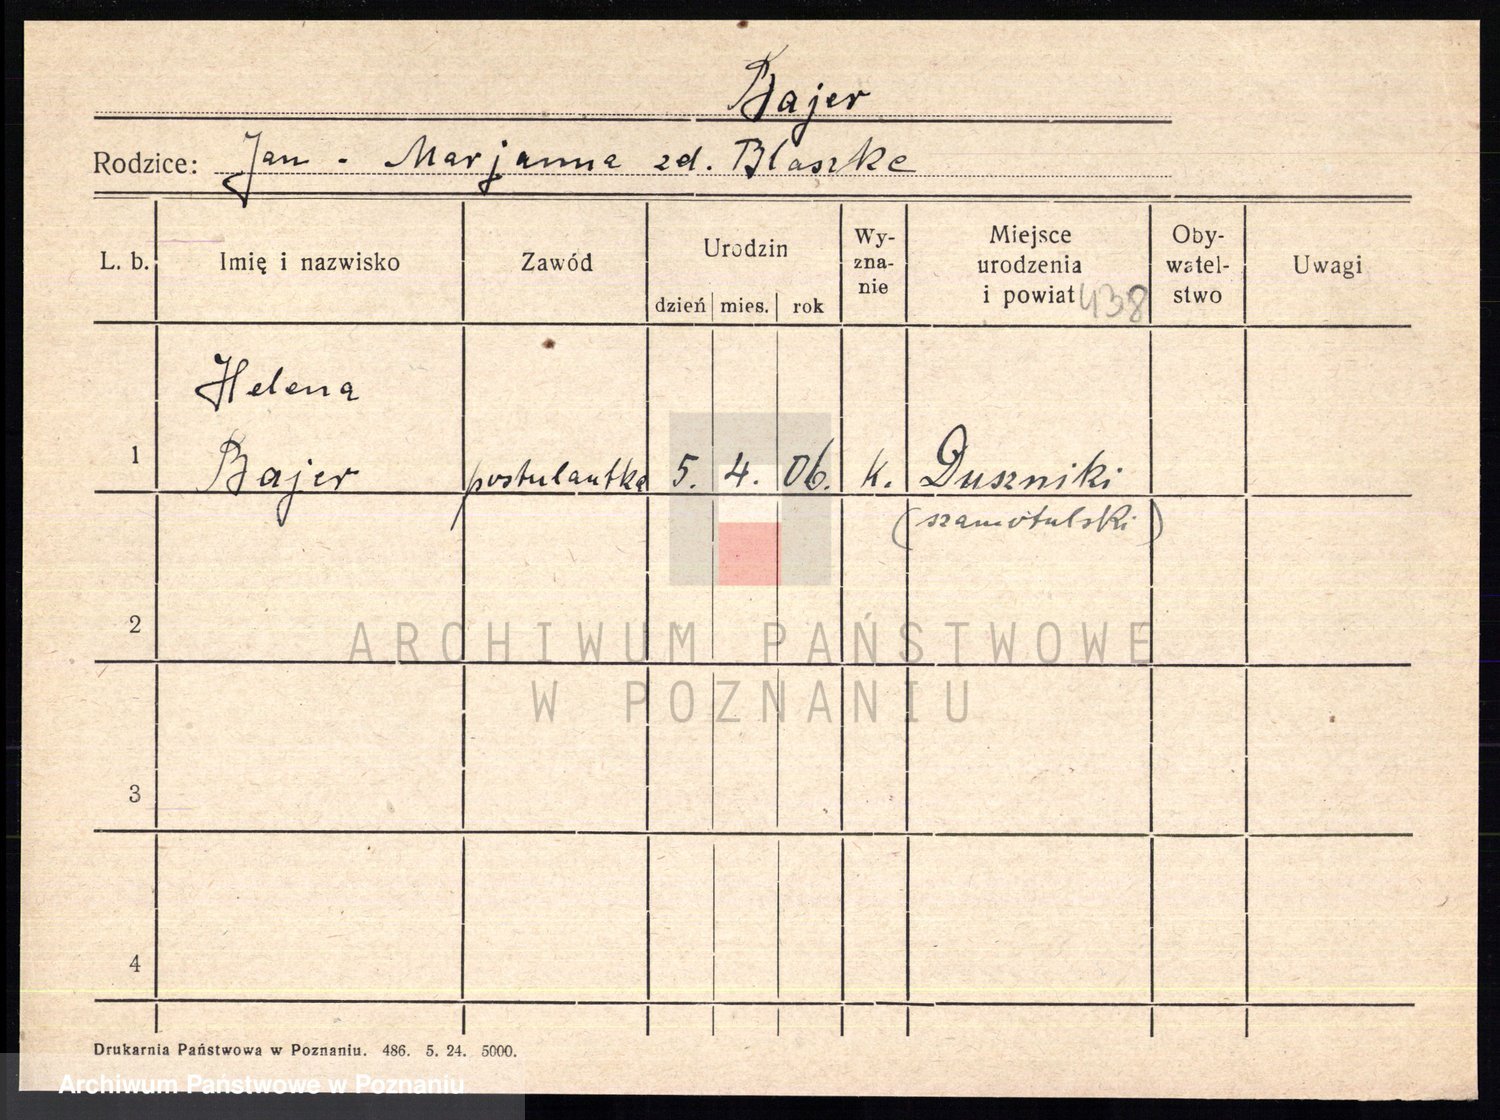 Bajer
Rodzice: Jan - Marjanna zd. Blaszke
L. b. Imię i nazwisko Zawód Urodzin Wy-zna-nie Miejsce urodzenia i powiat 438 Oby-watel-stwo Uwagi
dzień mies. rok
Helena
1 Bajer postulantka 5. 4. 06. k. Duszniki
(szamotulski)
2
ARCHIWUM PAŃSTWOWE
W POZNANIU
3
4
Drukarnia Państwowa w Poznaniu. 486. 5. 24. 5000.
Archiwum Państwowe w Poznaniu